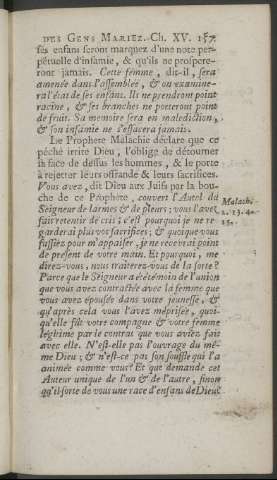 DES GENS MARIEZ. Ch. XV. 157
ses enfans seront marquez d'une note per-
pétuelle d'infamie, & qu'ils ne prospere-
ront jamais. Cette femme, dit-il, sera
amenée dans l'assemblée, & on examine-
ra l'état de ses enfans. Ils ne prendront point
racine, & ses branches ne porteront point
de fruit. Sa memoire sera en malediction,
& son infamie ne s'effacera jamais.
Le Prophete Malachie déclare que ce
péché irrite Dieu, l'oblige de détourner
sa face de dessus les hommes, & le porte
à rejetter leurs offrandes & leurs sacrifices.
Vous avez, dit Dieu aux Juifs par la bou-
che de ce Prophéte, couvert l'Autel du
Seigneur de larmes & de pleurs; vous l'avez
fait retentir de cris; c'est pourquoi je ne re-
garderai plus vos sacrifices; & quoique vous
fassiez pour m'appaiser, je ne recevrai point
de présent de votre main. Et pourquoi, me
direz-vous, nous traiterez-vous de la sorte?
Parce que le Seigneur a été témoin de l'union
que vous avez contractée avec la femme que
vous avez épousée dans votre jeunesse, &
qu'après cela vous l'avez méprisée, quoi-
qu'elle fût votre compagne & votre femme
légitime par le contrat que vous aviez fait
avec elle. N'est-elle pas l'ouvrage du mê-
me Dieu; & n'est-ce pas son souffle qui l'a
animée comme vous? Et que demande cet
Auteur unique de l'un & de l'autre, sinon
qu'il sorte de vous une race d'enfans de Dieu?
Malach.
2. 13. 14.
15.